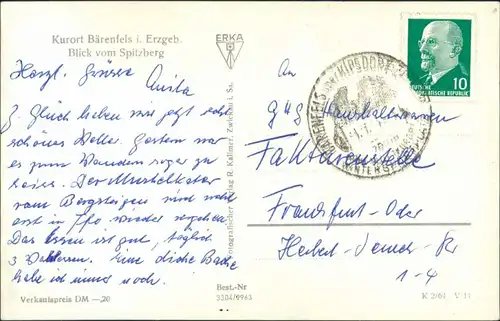 Kurort Bärenfels i. Erzgeb.
Blick vom Spitzberg
ERKA
Herzl. Grüsse
Anita
Z. Glück haben wir jetzt sehr
schönes Wetter. Gestern war
es zum Wandern sogar zu
heiss. Der Muskelkater
vom Bergsteigen wird wohl
erst in Ffo wieder vergehen.
Das Essen ist gut, täglich
3 Mahlzeiten. Eine dicke Backe
habe ich immer noch.
Verkaufspreis DM —,20
Verlag R. Kallmer, Zwickau i. Sa.
Best.-Nr
3304/9963
DEUTSCHE
DEMOKRATISCHE REPUBLIK
10
BÄRENFELS KIPSDORF
WINTERSPORT
An
Haushaltwaren
Fakturenstelle
Frankfurt-Oder
1-4
K 2/64 V 11